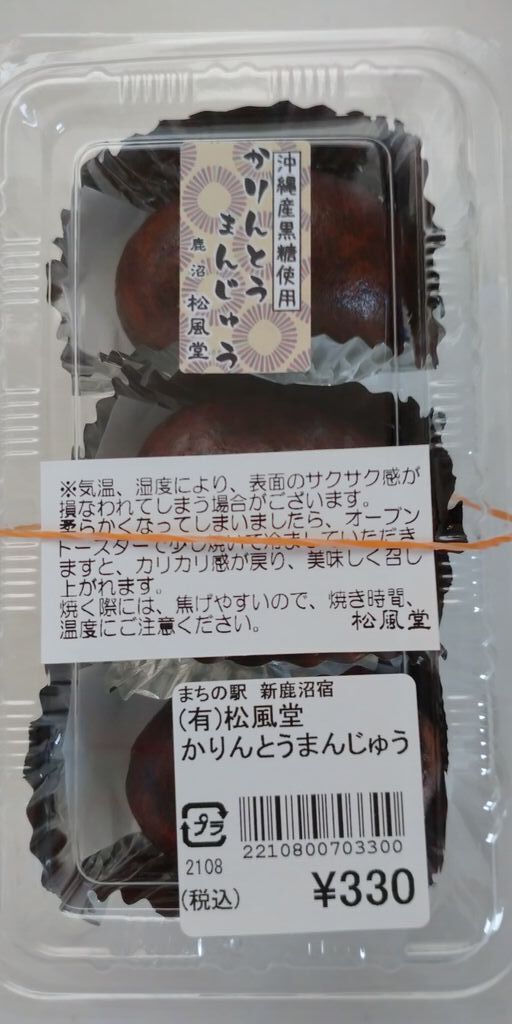 沖縄産黒糖使用
かりんとう
まんじゅう
鹿沼 松風堂
※気温、湿度により、表面のサクサク感が
損なわれてしまう場合がございます。
柔らかくなってしまいましたら、オーブン
トースターで少し焼いて冷ましていただき
ますと、カリカリ感が戻り、美味しく召し
上がれます。
焼く際には、焦げやすいので、焼き時間、
温度にご注意ください。 松風堂
まちの駅 新鹿沼宿
(有)松風堂
かりんとうまんじゅう
プラ
2210800703300
2108
(税込) ¥330